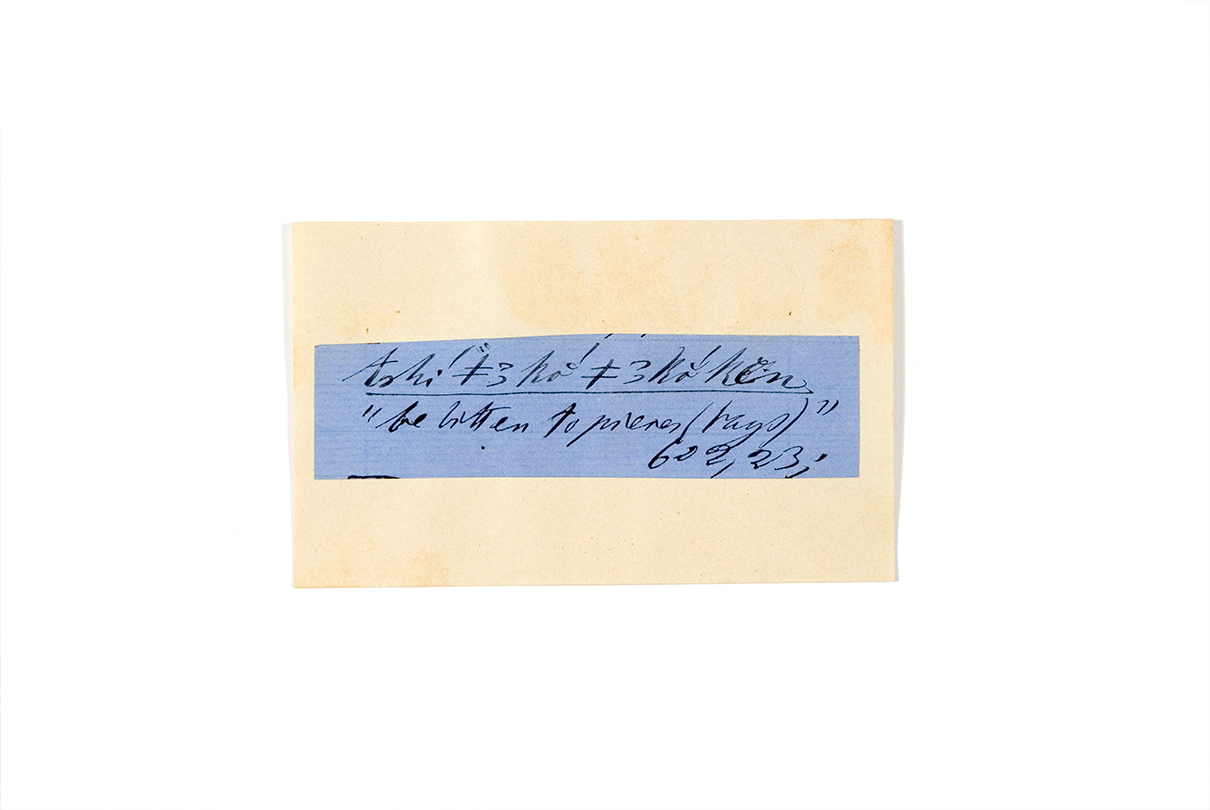 tshí ǂ3kắ ǂ3kắ kĕn
"be bitten to pieces (rags)"
602, 23;